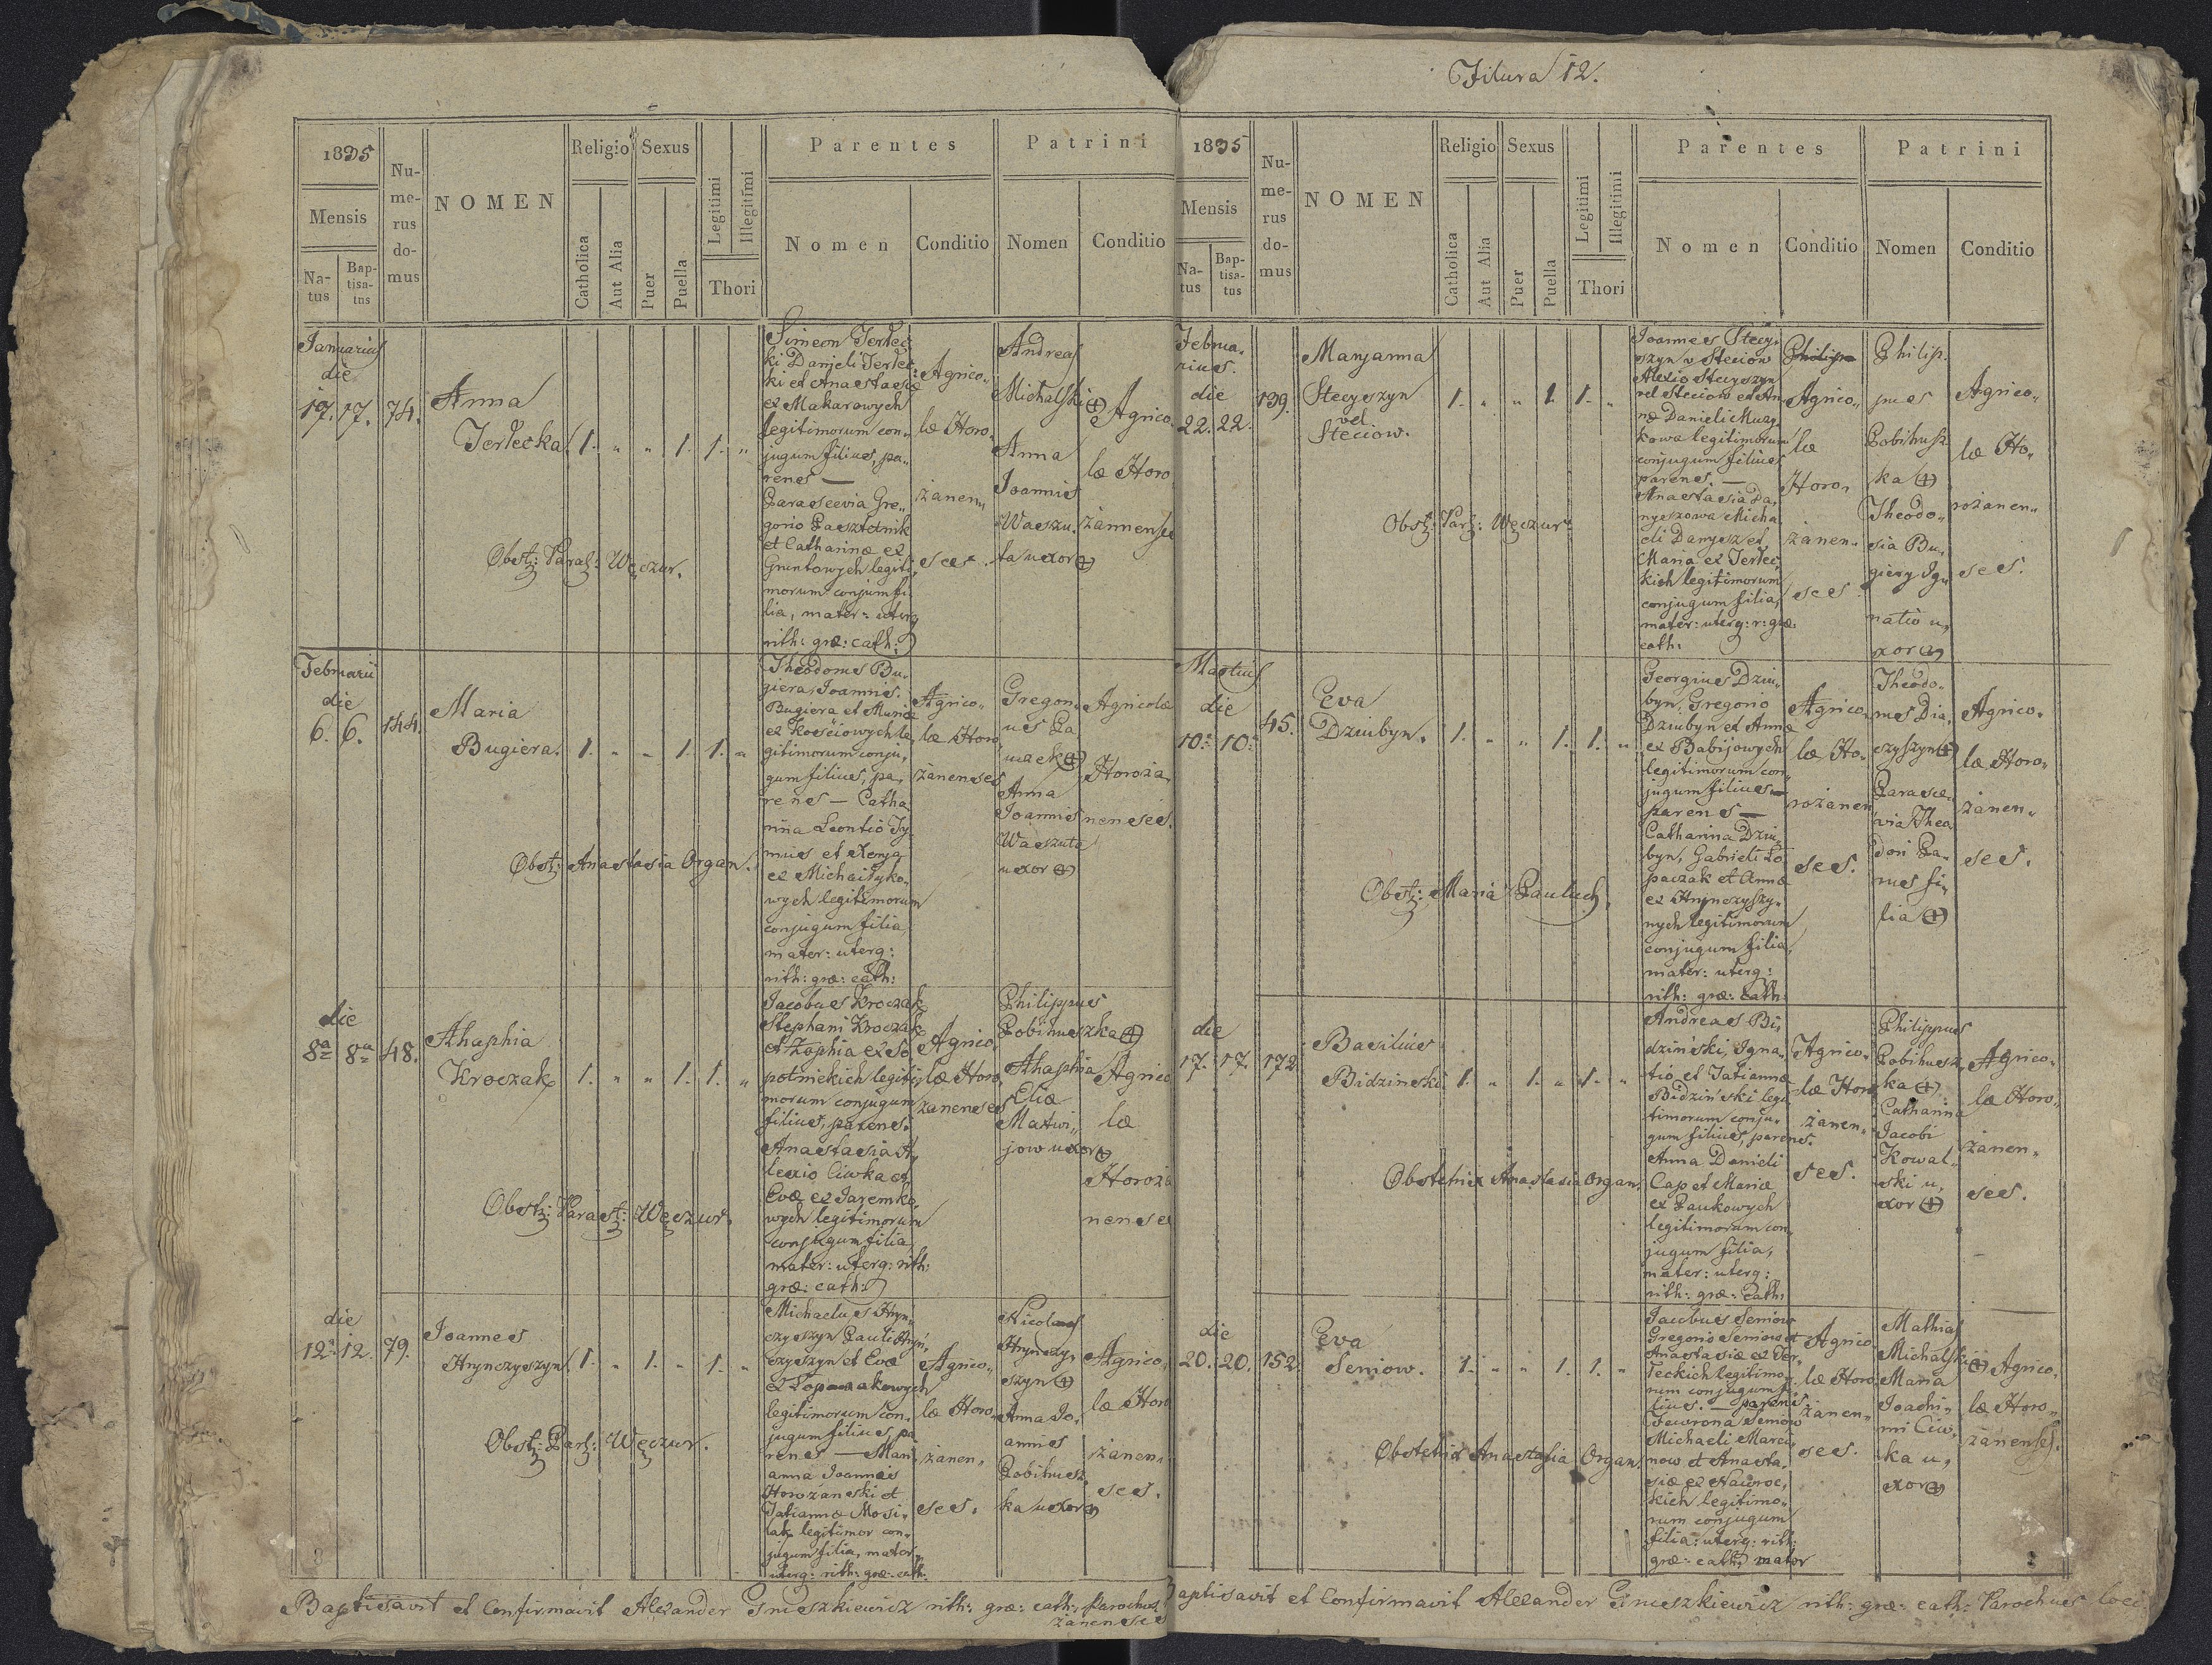 Filura 12.
1835
Mensis
Na-
tus
Bap-
tisa-
tus
Nu-
me-
rus
do-
mus
NOMEN
Religio
Catholica
Aut Alia
Sexus
Puer
Puella
Legitimi
Illegitimi
Thori
Parentes
Nomen
Conditio
Patrini
Nomen
Conditio
Januarius
die
17. 17. 74.
Anna
Jerlecka
1. „ „ 1. 1. „
Simeon Jerlec
ki Danieli Jerlec
ki et Anastasiæ
ex Makarowych
legitimorum con„
jugum filius, pa„
rens —
Parascevia Gre„
gorio Pasztetnik
et Catharinæ ex
Gruntowych legiti
morum conjum fi
lia, mater: uterq
rith: græ: cath:
Agrico„
læ Horo„
żanen„
ses.
Andreas
Michalski
Anna
Joannis
Waszu„
ta uxor
Agrico„
læ Horo
żannenses
Obst: Paras: Węczur.
Februarii
die
6. 6. 144.
Maria
Bugiera.
1. „ „ 1. 1. „
Theodorus Bu„
giera, Joannis.
Bugiera et Mariæ
ex Kościowych le„
gitimorum conju„
gum filius, pa„
rens — Catha
rina Leontio Ty„
mus et Xenja
ex Michaiłyko„
wych legitimorum
conjugum filia,
mater: uterq:
rith: græ: cath:
Agrico„
læ Horo„
żanenses
Gregori„
us Pa„
uzek
Anna
Joannis
Waszuta
uxor
Agricolæ
Horoża„
nenses.
Obst: Anastasia Organ.
die
8a 8a 48.
Ahaphia
Kroczak
1. „ „ 1. 1. „
Jacobus Kroczak
Stephani Kroczak
et Zophia ex So
potnickich legiti„
morum conjugum
filius, parens.
Anastasia A„
lexio Ciwka et
Evæ ex Jaremko„
wych legitimorum
conjugum filia
mater: uterq: rith:
græ: cath:
Agrico„
læ Horo„
żanenses
Philippus
Pobihuszka
Ahaphia
Eliæ
Matwi„
jow uxor
Agrico
læ
Horoża
nenses
Obst: Parast: Węczur.
die
12. 12. 79.
Joannes
Hrynczyszyn
1. „ 1. „ 1. „
Michaelus Hryn„
czyszyn Pauli Hryn„
czyszyn et Evæ
ex Łopaczakowych
legitimorum con„
jugum filius, pa
rens — Mari
anna Joannis
Horożanski et
Tatianna Mosi„
lak legitimor con„
jugum filia, mater
uterq: rith: græ: cath:
Agrico„
læ Horo„
żanen„
ses.
Nicolaus
Hrynczy„
szyn
Anna Jo„
annis
Pobihusz„
ka uxor
Agrico„
læ Horo
żanen„
ses.
Obst: Par: Węczur.
Baptisavit et Confirmavit Alexander Gmeszkiewicz rith: græ: cath: parochus
żanenses
1835
Mensis
Na-
tus
Bap-
tisa-
tus
Nu-
me-
rus
do-
mus
NOMEN
Religio
Catholica
Aut Alia
Sexus
Puer
Puella
Legitimi
Illegitimi
Thori
Parentes
Nomen
Conditio
Patrini
Nomen
Conditio
Februa„
rius.
die
22. 22. 139.
Marjanna
Stecyszyn
vel
Steciow.
1. „ „ 1. 1. „
Joannes Stecy„
szyn v Steciow
Alexio Stecyszyn
vel Steciow et An„
næ Danieli Muzy„
kowa legitimorum
conjugum filius
parens —
Anastasia Da„
nyszowa Micha
eli Danysz et
Maria ex Jerlec„
kich legitimorum
conjugum filia,
mater: uterq: r: græ:
cath:
Agrico„
læ
Horo„
żanen„
ses.
Philip„
pus
Pobihusz
ka
Theodo„
sia Bu„
giery Ig„
natio u„
xor
Agrico„
læ Ho„
rożanen„
ses.
Obst: Par: Węczur.
Martius
die
10. 10. 45.
Eva
Dziubyn.
1. „ „ 1. 1. „
Georgius Dziu„
byn, Gregorio
Dziubyn et Annæ
ex Babijowych
legitimorum con„
jugum filius—
parens —
Catharina Dziu„
byn, Gabrieli Ło
paczak et Annæ
ex Hrynczyszy„
nych legitimorum
conjugum filia,
mater: uterq:
rith: græ: cath:
Agrico„
læ Ho„
rożanen
ses.
Theodo„
rus Dia„
czyszyn
Parasce„
via Theo„
dori Pa„
nus fi„
lia
Agrico„
læ Horo„
żanen„
ses.
Obst: Maria Pauluch.
die
17. 17. 172.
Basilius
Bidzinski
1. „ 1. „ 1. „
Andreas Bi„
dziński, Igna„
tio et Tatiannæ
Bidziński legi„
timorum conju„
gum filius, parens.
Anna Danieli
Cap et Mariæ
ex Paukowych
legitimorum con„
jugum filia,
mater: uterq:
rith: græ: cath:
Agrico„
læ Horo
żanen„
ses.
Philippus
Pobihusz„
ka
Catharina
Jacobi
Kowal„
ski u„
xor
Agrico„
læ Horo„
żanen„
ses.
Obstetrix Anastasia Organ.
die
20. 20. 152.
Eva
Seniow.
1. „ „ 1. 1. „
Jacobus Seniow
Gregorio Seniow et
Anastasiæ ex Ter„
leckich legitimo„
rum conjugum fi
lius. — parens
Fewrona Seniow
Michaeli Marci„
now et Anasta„
siæ ex Nawroc„
kich legitimo„
rum conjugum
filia: uterq: rith:
græ: cath: mater
Agrico
læ Horo
żanen„
ses.
Mathias
Michalski
Maria
Joachi„
mi Ciw„
ka u„
xor
Agrico„
læ Horo„
żanenses.
Obstetrix Anastasia Organ.
Baptisavit et Confirmavit Alexander Gmeszkiewicz rith: græ: cath: Parochus loci